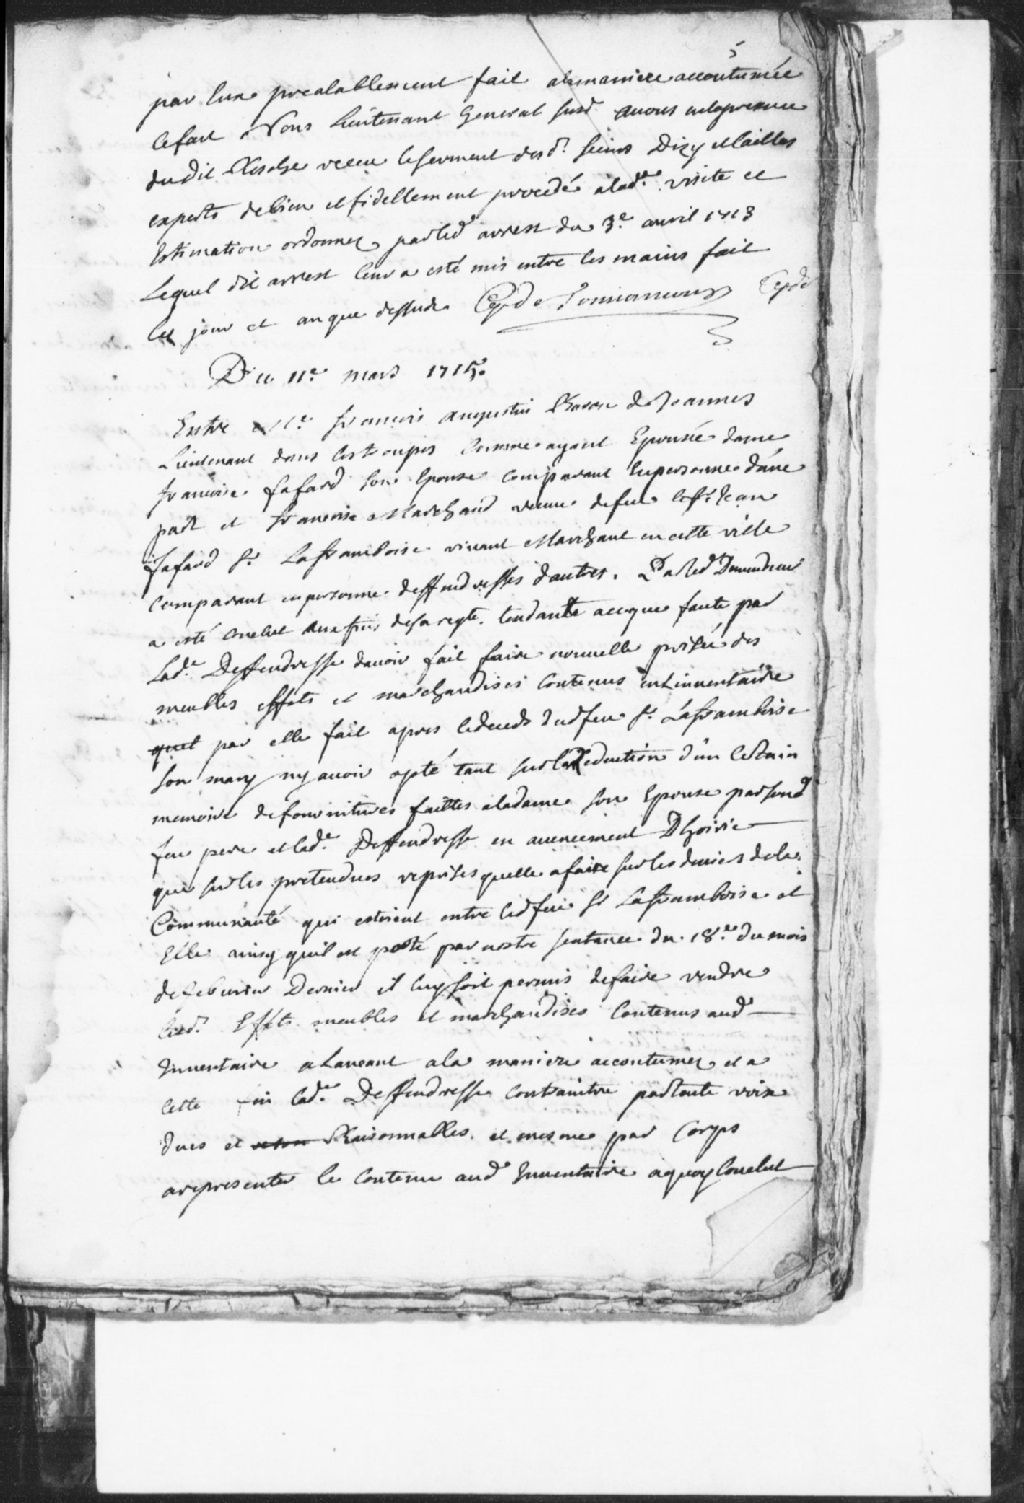 5
par lun prealablement fait alamaniere accoutumée
Ce fait Nous Lieutenant General susd avons en la presence
dudit Plessise receu le serment desd. sieurs Dizy et
experts de bien et fidellement proceder a lad.e visite et
Estimation ordonnez par led arrest du 3.e avril 1713
Lequel dit arrest leur a esté mis entre les mains fait
Les jour et an que dessus
Du 11.e mars 1715.
Entre françois augustin Baron de Joannes
Lieutenant dans les troupes Comme ayant Epousée dame
francoise Fafard son Epouse comparant En personne d'une
part et francoise Marchand veuve de feu le s.r Jean
Fafard S.r Laframboise vivant Marchant en cette ville
comparant en personne deffendresse d'autres. Par led Demandeur
a esté conclut aux fins de sa reqte. tendante ace que faute par
Lad.e Deffendresse davoir fait faire nouvelle prisée des
meubles effets et marchandises Contenus en Linventaire
quel par elle fait apres le deceds dudfeu S.r Laframboise
son mary ny avoir opté tant sur la deduction d'un Certain
memoire de fournitures faittes a la dame son Epouse par sond
feu pere et lad.e Deffendresse en avencement D'hoirie
que sur les pretendues reprises quelle a faire sur les deniers de la
Communauté qui estoient entre led feu S.r Laframboise et
Elle ainsy quil est porté par nostre sentance du 18.e du mois
de feburier Dernier et luy soit permis de faire vendre
lesd. Effets meubles et marchandises Contenus aud
Inventaire a Lancant a la maniere accoutumez et a
cette fin lad.e Deffendresse Contrainte par toute voix
dues et Raisonnables et mesme par Corps
a representer le Contenu aud Inventaire a quoy Conclut